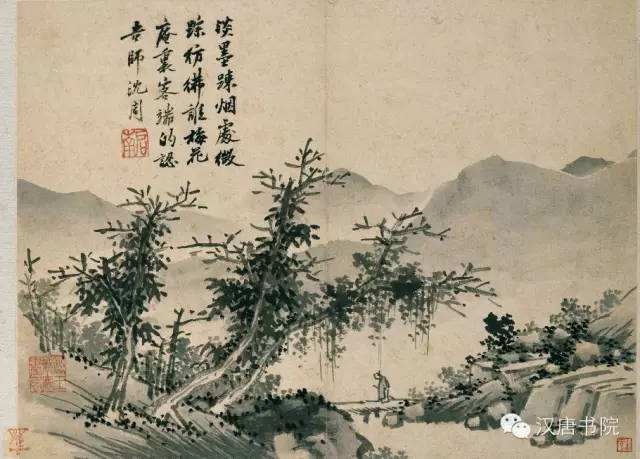 淡墨踈烟處微
踪彷彿誰梅花
庵裏客端的認
吾師沈周
汉唐书院